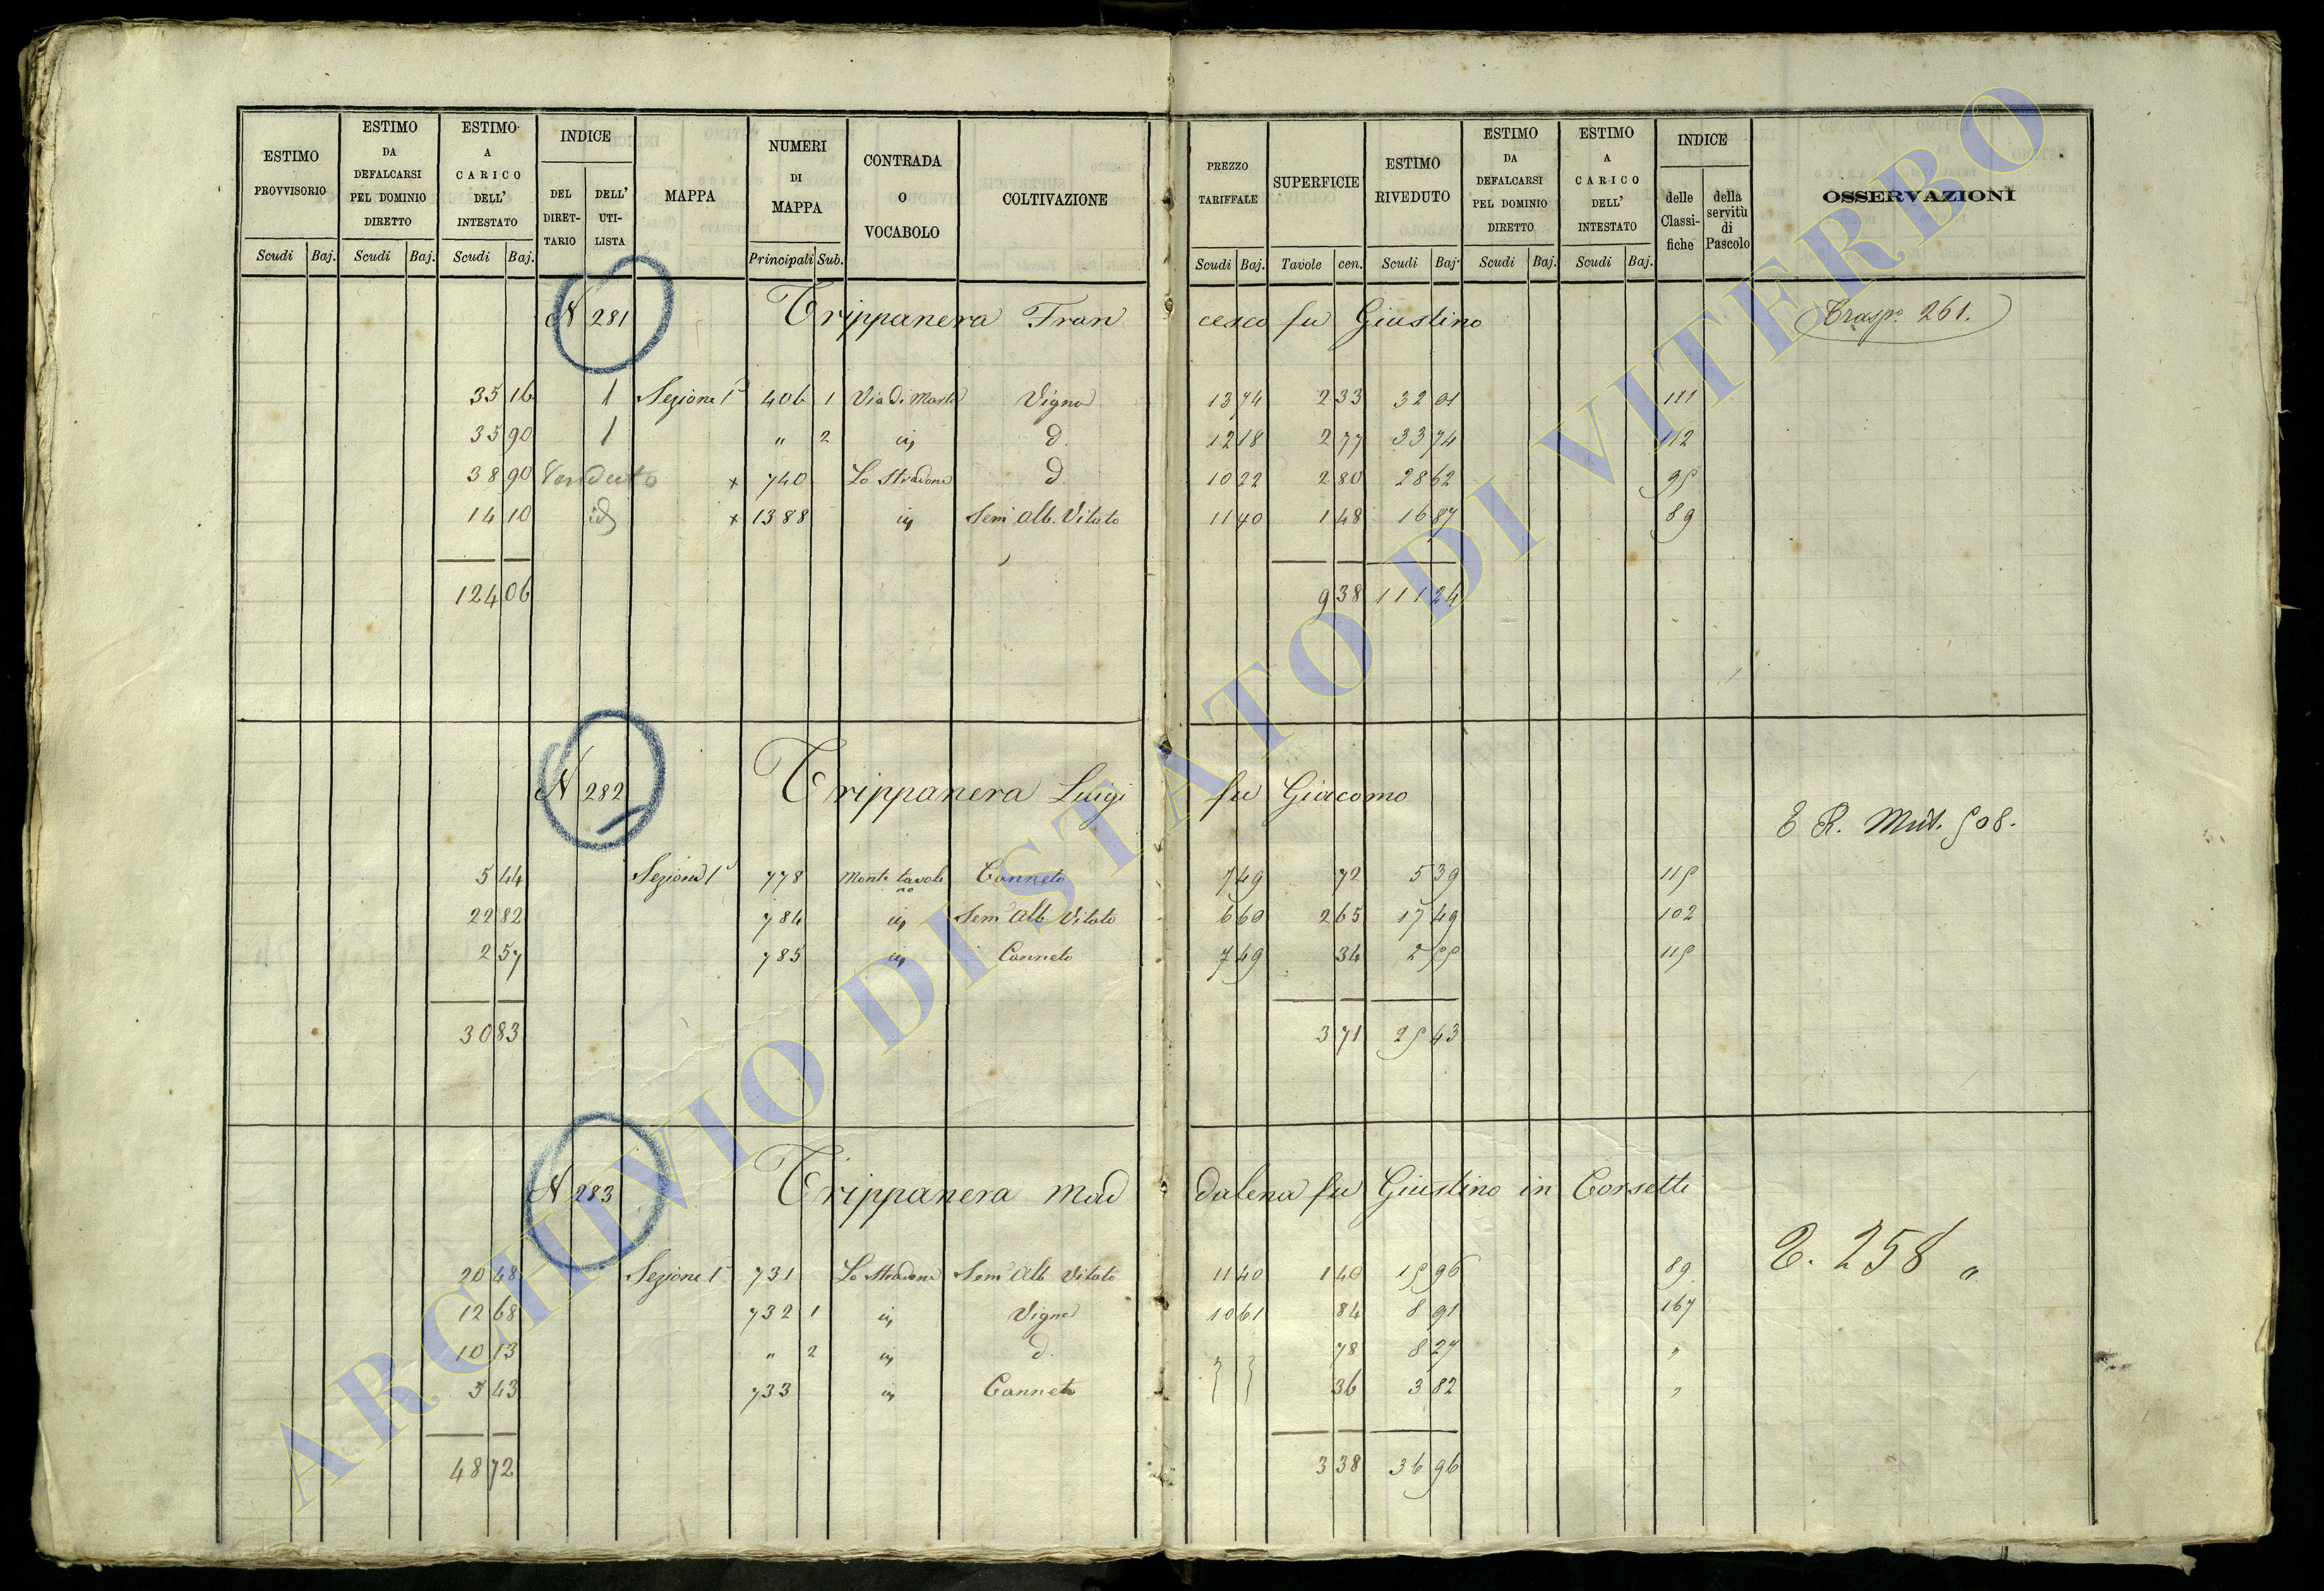 ESTIMO PROVVISORIO
ESTIMO DA DEFALCARSI PEL DOMINIO DIRETTO
ESTIMO A CARICO DELL' INTESTATO
INDICE
DEL DIRET-TARIO
DELL' UTI-LISTA
MAPPA
NUMERI DI MAPPA
CONTRADA O VOCABOLO
COLTIVAZIONE
PREZZO TARIFFALE
SUPERFICIE
ESTIMO RIVEDUTO
ESTIMO DA DEFALCARSI PEL DOMINIO DIRETTO
ESTIMO A CARICO DELL' INTESTATO
INDICE
delle Classi-fiche
della servitù di Pascolo
OSSERVAZIONI
Scudi Baj. Scudi Baj. Scudi Baj. Principali Sub. Scudi Baj. Tavole cen. Scudi Baj. Scudi Baj. Scudi Baj.
N 281 Trippanera Francesco fu Giustino Trasp. 261.
35 16 1 Sezione 1ª 406 1 Via di Marta Vigna 13 74 2 33 32 01 111
35 90 1 " 2 id d. 12 18 2 77 33 74 112
38 90 Venduto x 740 Lo Stradone d. 10 22 2 80 28 62 95
14 10 id x 1388 id Sem Alb. Vitato 11 40 1 48 16 87 89
124 06 9 38 111 24
N 282 Trippanera Luigi fu Giacomo
E R. Mut. 508.
5 44 Sezione 1ª 778 Monte tavolino Canneto 7 49 72 5 39 115
22 82 784 id Sem Alb Vitato 6 60 2 65 17 49 102
2 57 785 id Canneto 7 49 34 2 55 115
30 83 3 71 25 43
N 283 Trippanera Maddalena fu Giustino in Corsetti
258 "
20 48 Sezione 1ª 731 Lo Stradone Sem Alb Vitato 11 40 1 40 15 96 89
12 68 732 1 id Vigna 10 61 84 8 91 167
10 13 " 2 id d. 78 8 27 "
5 43 733 id Canneto 36 3 82 "
48 72 3 38 36 96
ARCHIVIO DI STATO DI VITERBO